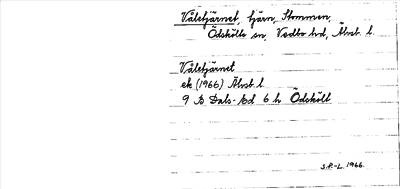 Våletjärnet, tjärn, Stommen,
Ödskölts sn, Vedbo hd, Älvsb. l.
Våletjärnet
ek (1966) Älvsb. l.
9 B Dals-Ed 6 h Ödskölt
S.R-L. 1966.